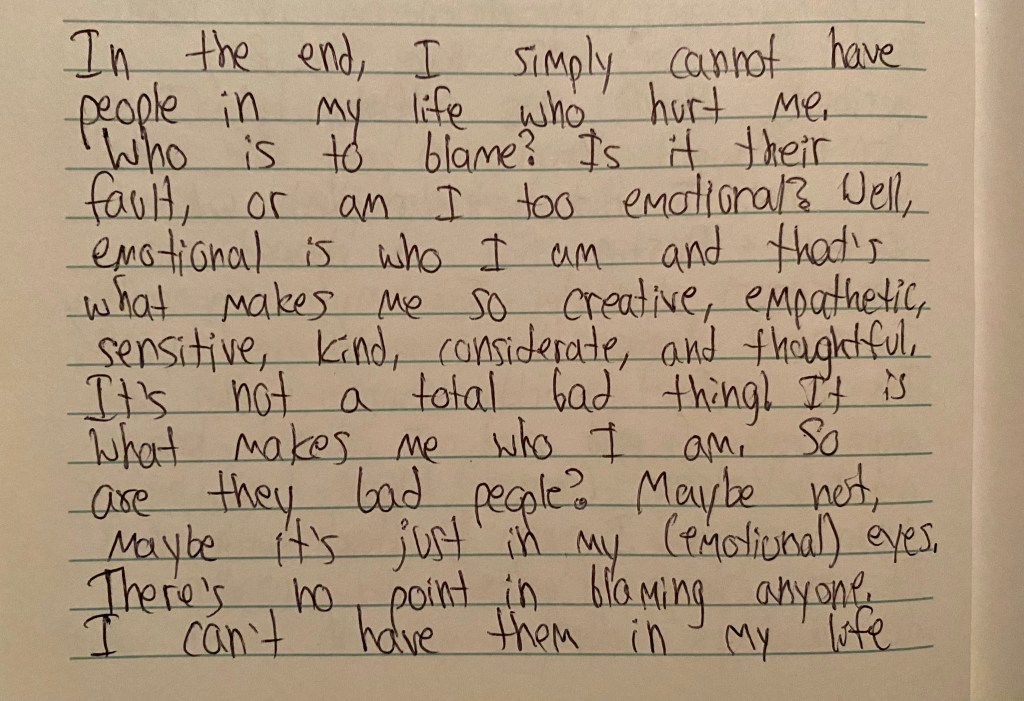 In the end, I simply cannot have
people in my life who hurt me.
Who is to blame? Is it their
fault, or am I too emotional? Well,
emotional is who I am and that's
what makes me so creative, empathetic,
sensitive, kind, considerate, and thoghtful.
It's not a total bad thing! It is
what makes me who I am. So
are they bad people? Maybe not,
Maybe it's just in my (emotional) eyes.
There's no point in blaming anyone.
I can't have them in my life